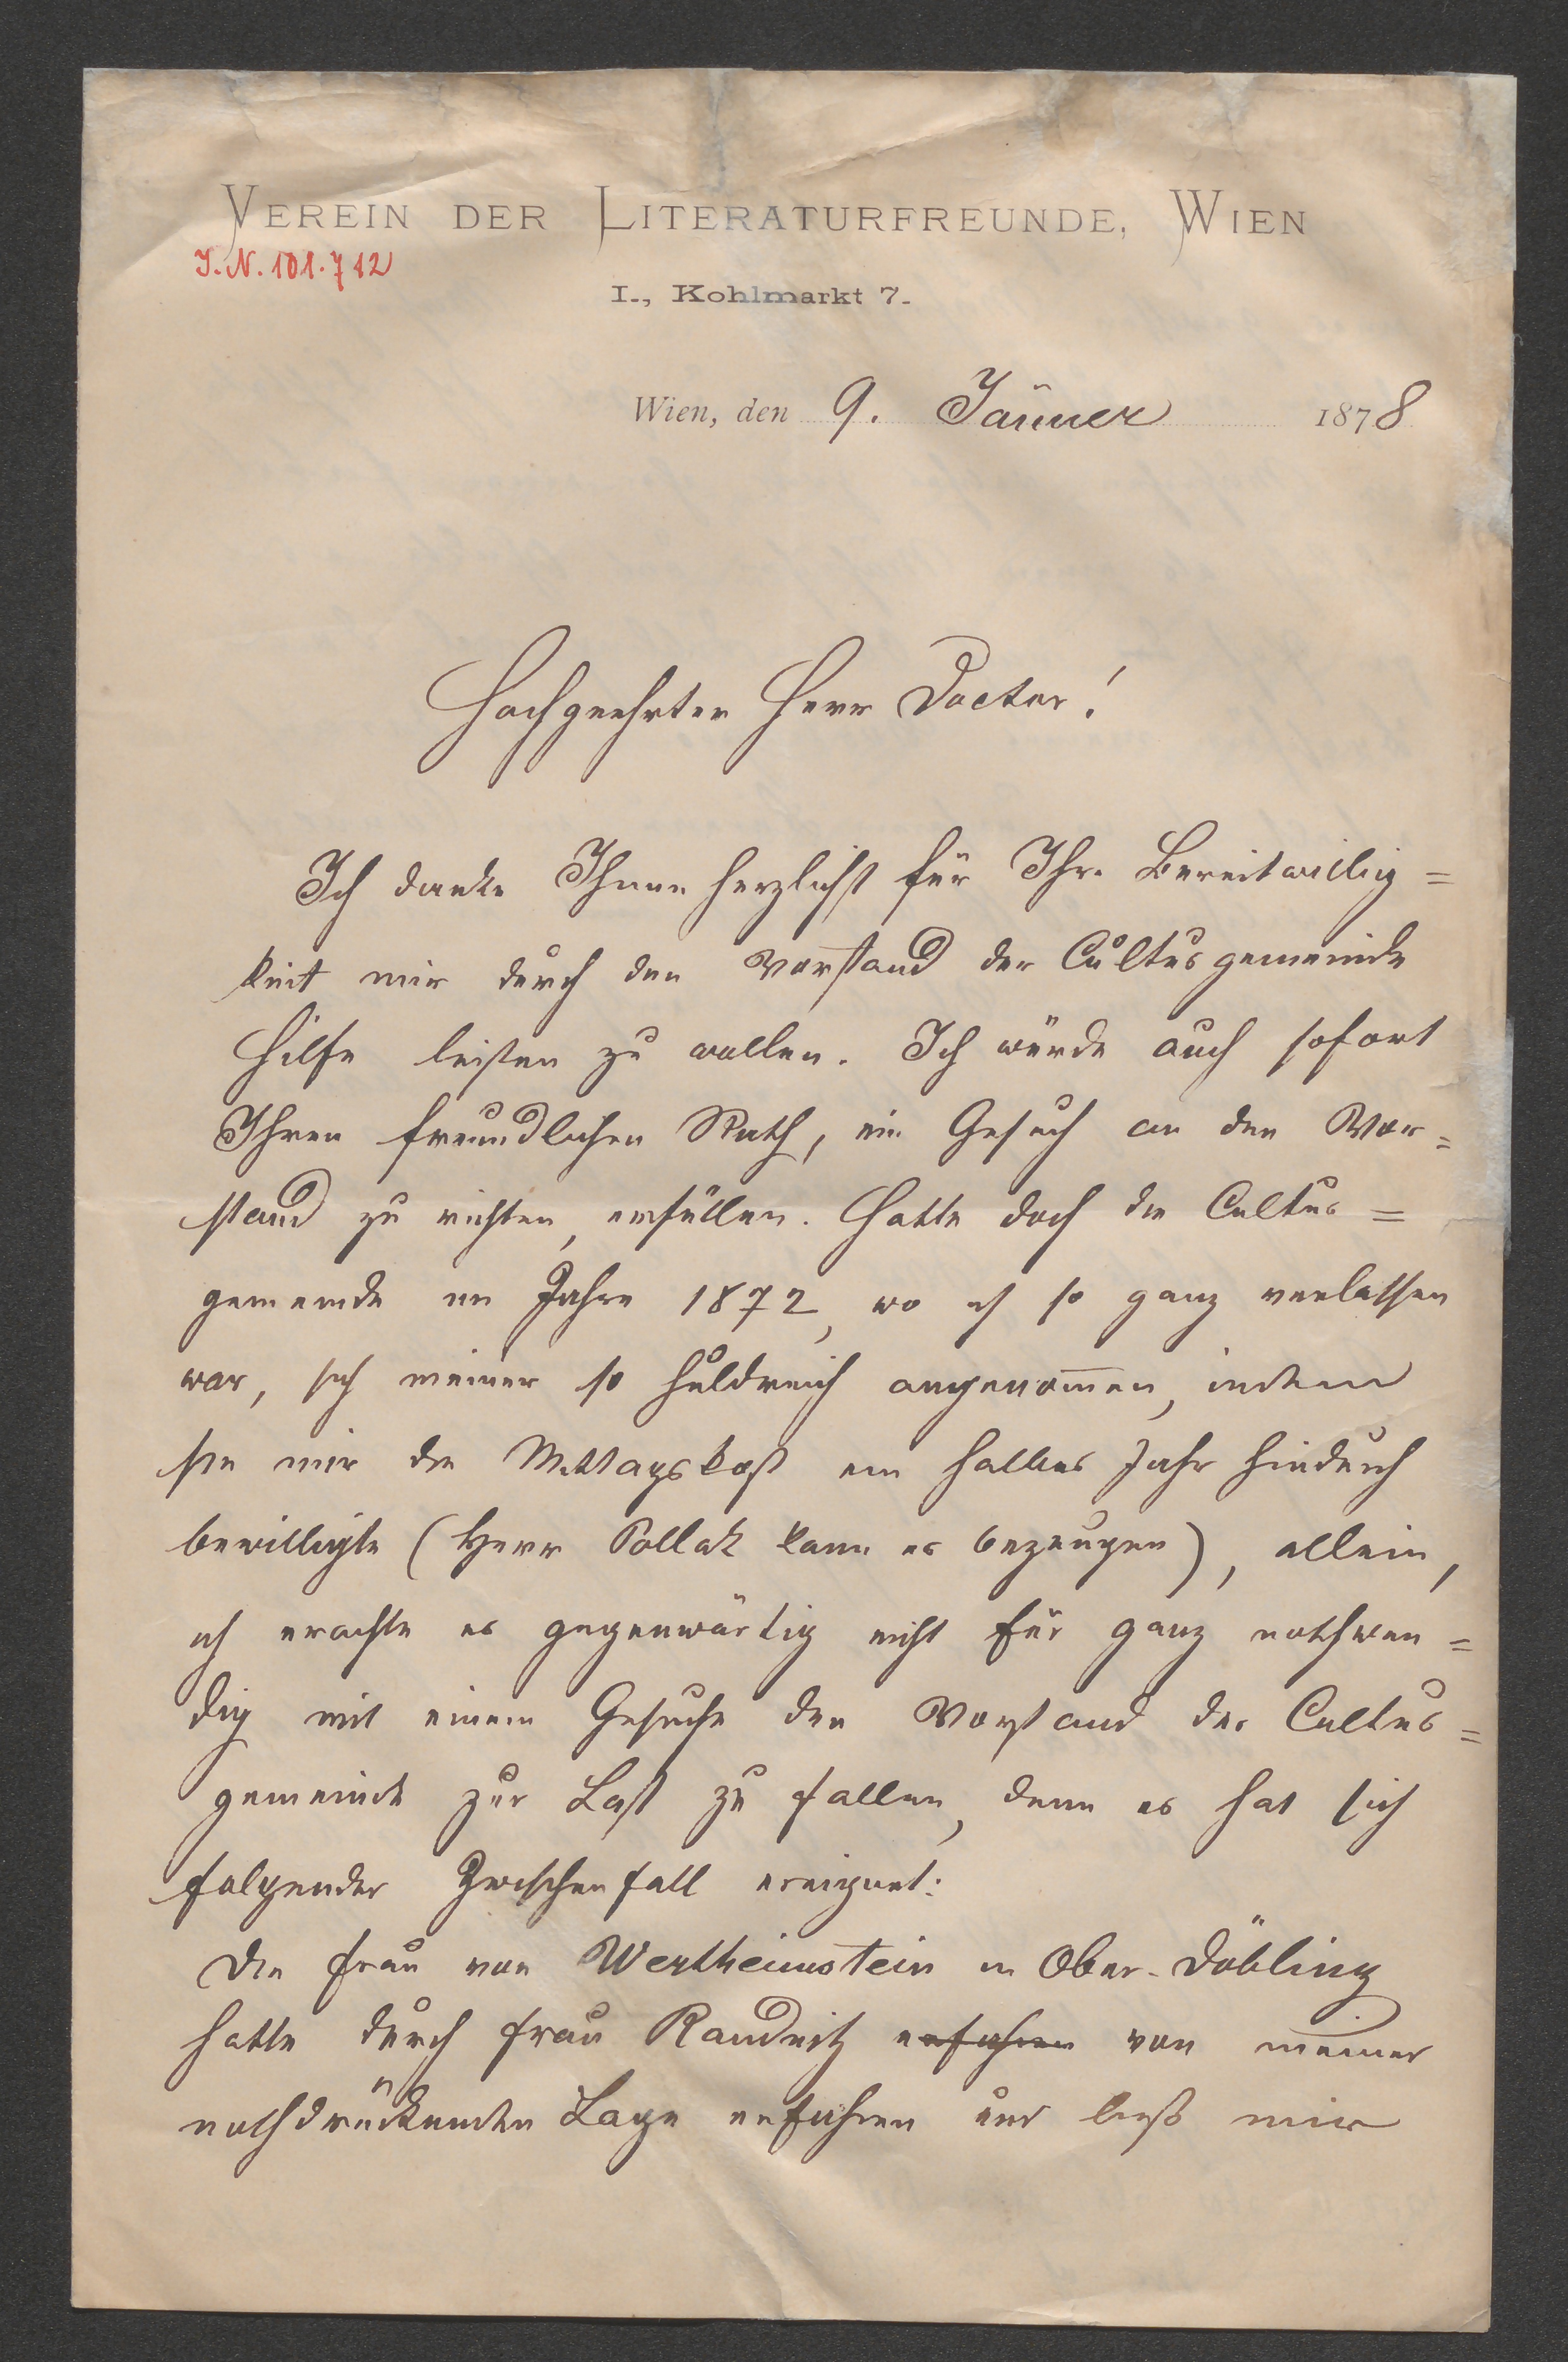 VEREIN DER LITERATURFREUNDE, WIEN
I. N. 101.712
I., Kohlmarkt 7.
Wien, den 9. Jänner 1878
Hochgeehrter Herr Doctor!
Ich danke Ihnen herzlichst für Ihre Bereitwillig=
keit mir durch den Vorstand der Cultusgemeinde
Hilfe leisten zu wollen. Ich würde auch sofort
Ihren freundlichen Rath, ein Gesuch an den Vor=
stand zu richten, erfüllen. Hatte doch die Cultus=
gemeinde im Jahre 1872, wo ich so ganz verlassen
war, sich meiner so huldreich angenom̄en, indem
sie mir die Mittagskost ein halbes Jahr hindurch
bewilligte (Herr Pollak kann es bezeugen), allein,
ich erachte es gegenwärtig nicht für ganz nothwen=
dig mit einem Gesuche den Vorstand der Cultus=
gemeinde zur Last zu fallen, denn es hat sich
folgender Zwischenfall ereignet:
Die Frau von Wertheimstein in Ober-Döbling
hatte durch Frau Raudnitz erfahren von meiner
nothdrückenden Lage erfahren und ließ mir